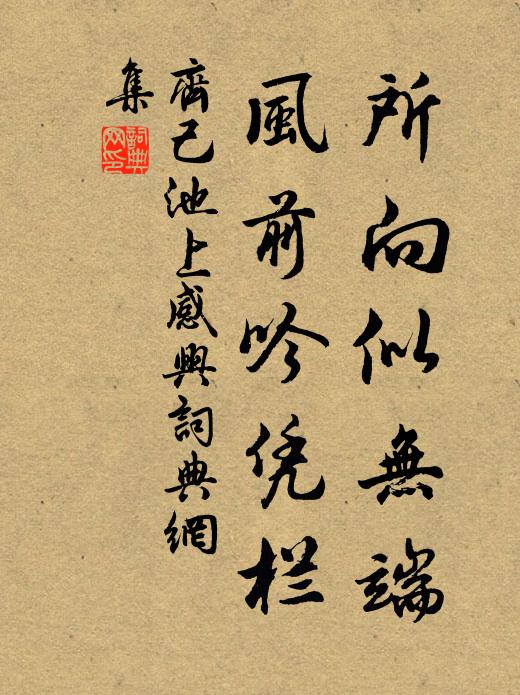 所向似無端
風前吟凭栏
齊己池上感興詞典網
集
詞典
网印